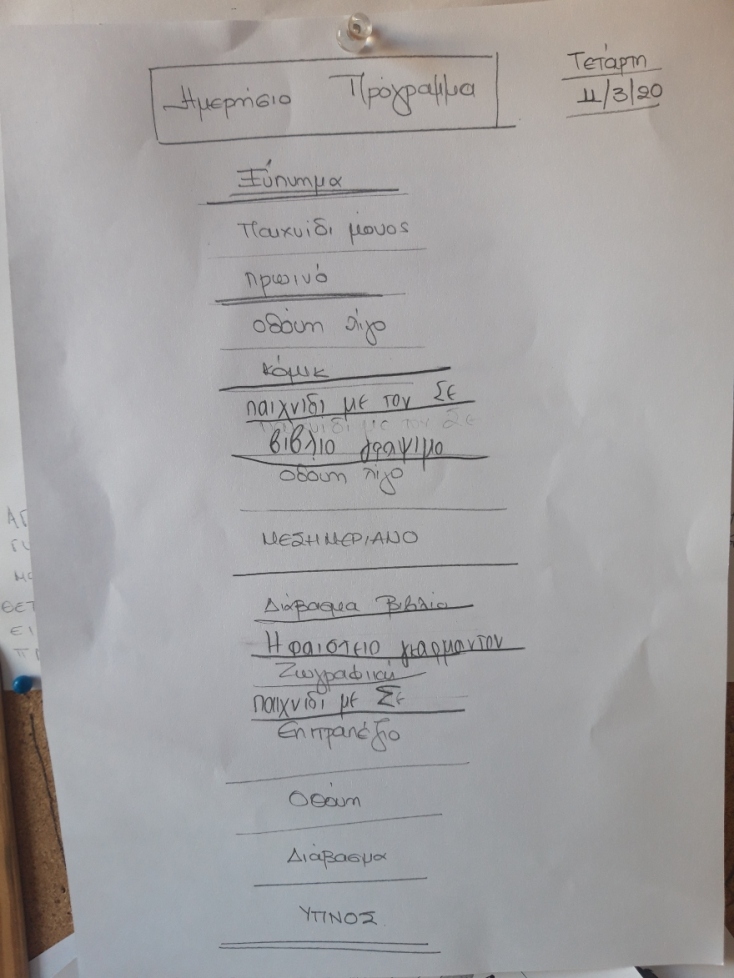 Ημερήσιο Πρόγραμμα
Τετάρτη
11/3/20
Ξύπνημα
Παιχνίδι μόνος
Πρωινό
οθόνη λίγο
κόμικ
παιχνιδι με τον Σε
παιχνίδι με τον Σε
βιβλιο γραψιμο
οθόνη λίγο
ΜΕΣΗΜΕΡΙΑΝΟ
Διάβασμα Βιβλία
Ηφαιστειο
Ζωγραφική
παιχνιδι με Σε
Επιτραπέζιο
Οθόνη
Διάβασμα
ΥΠΝΟΣ
ΑΓ
ΘΕΤ
ΕΙ